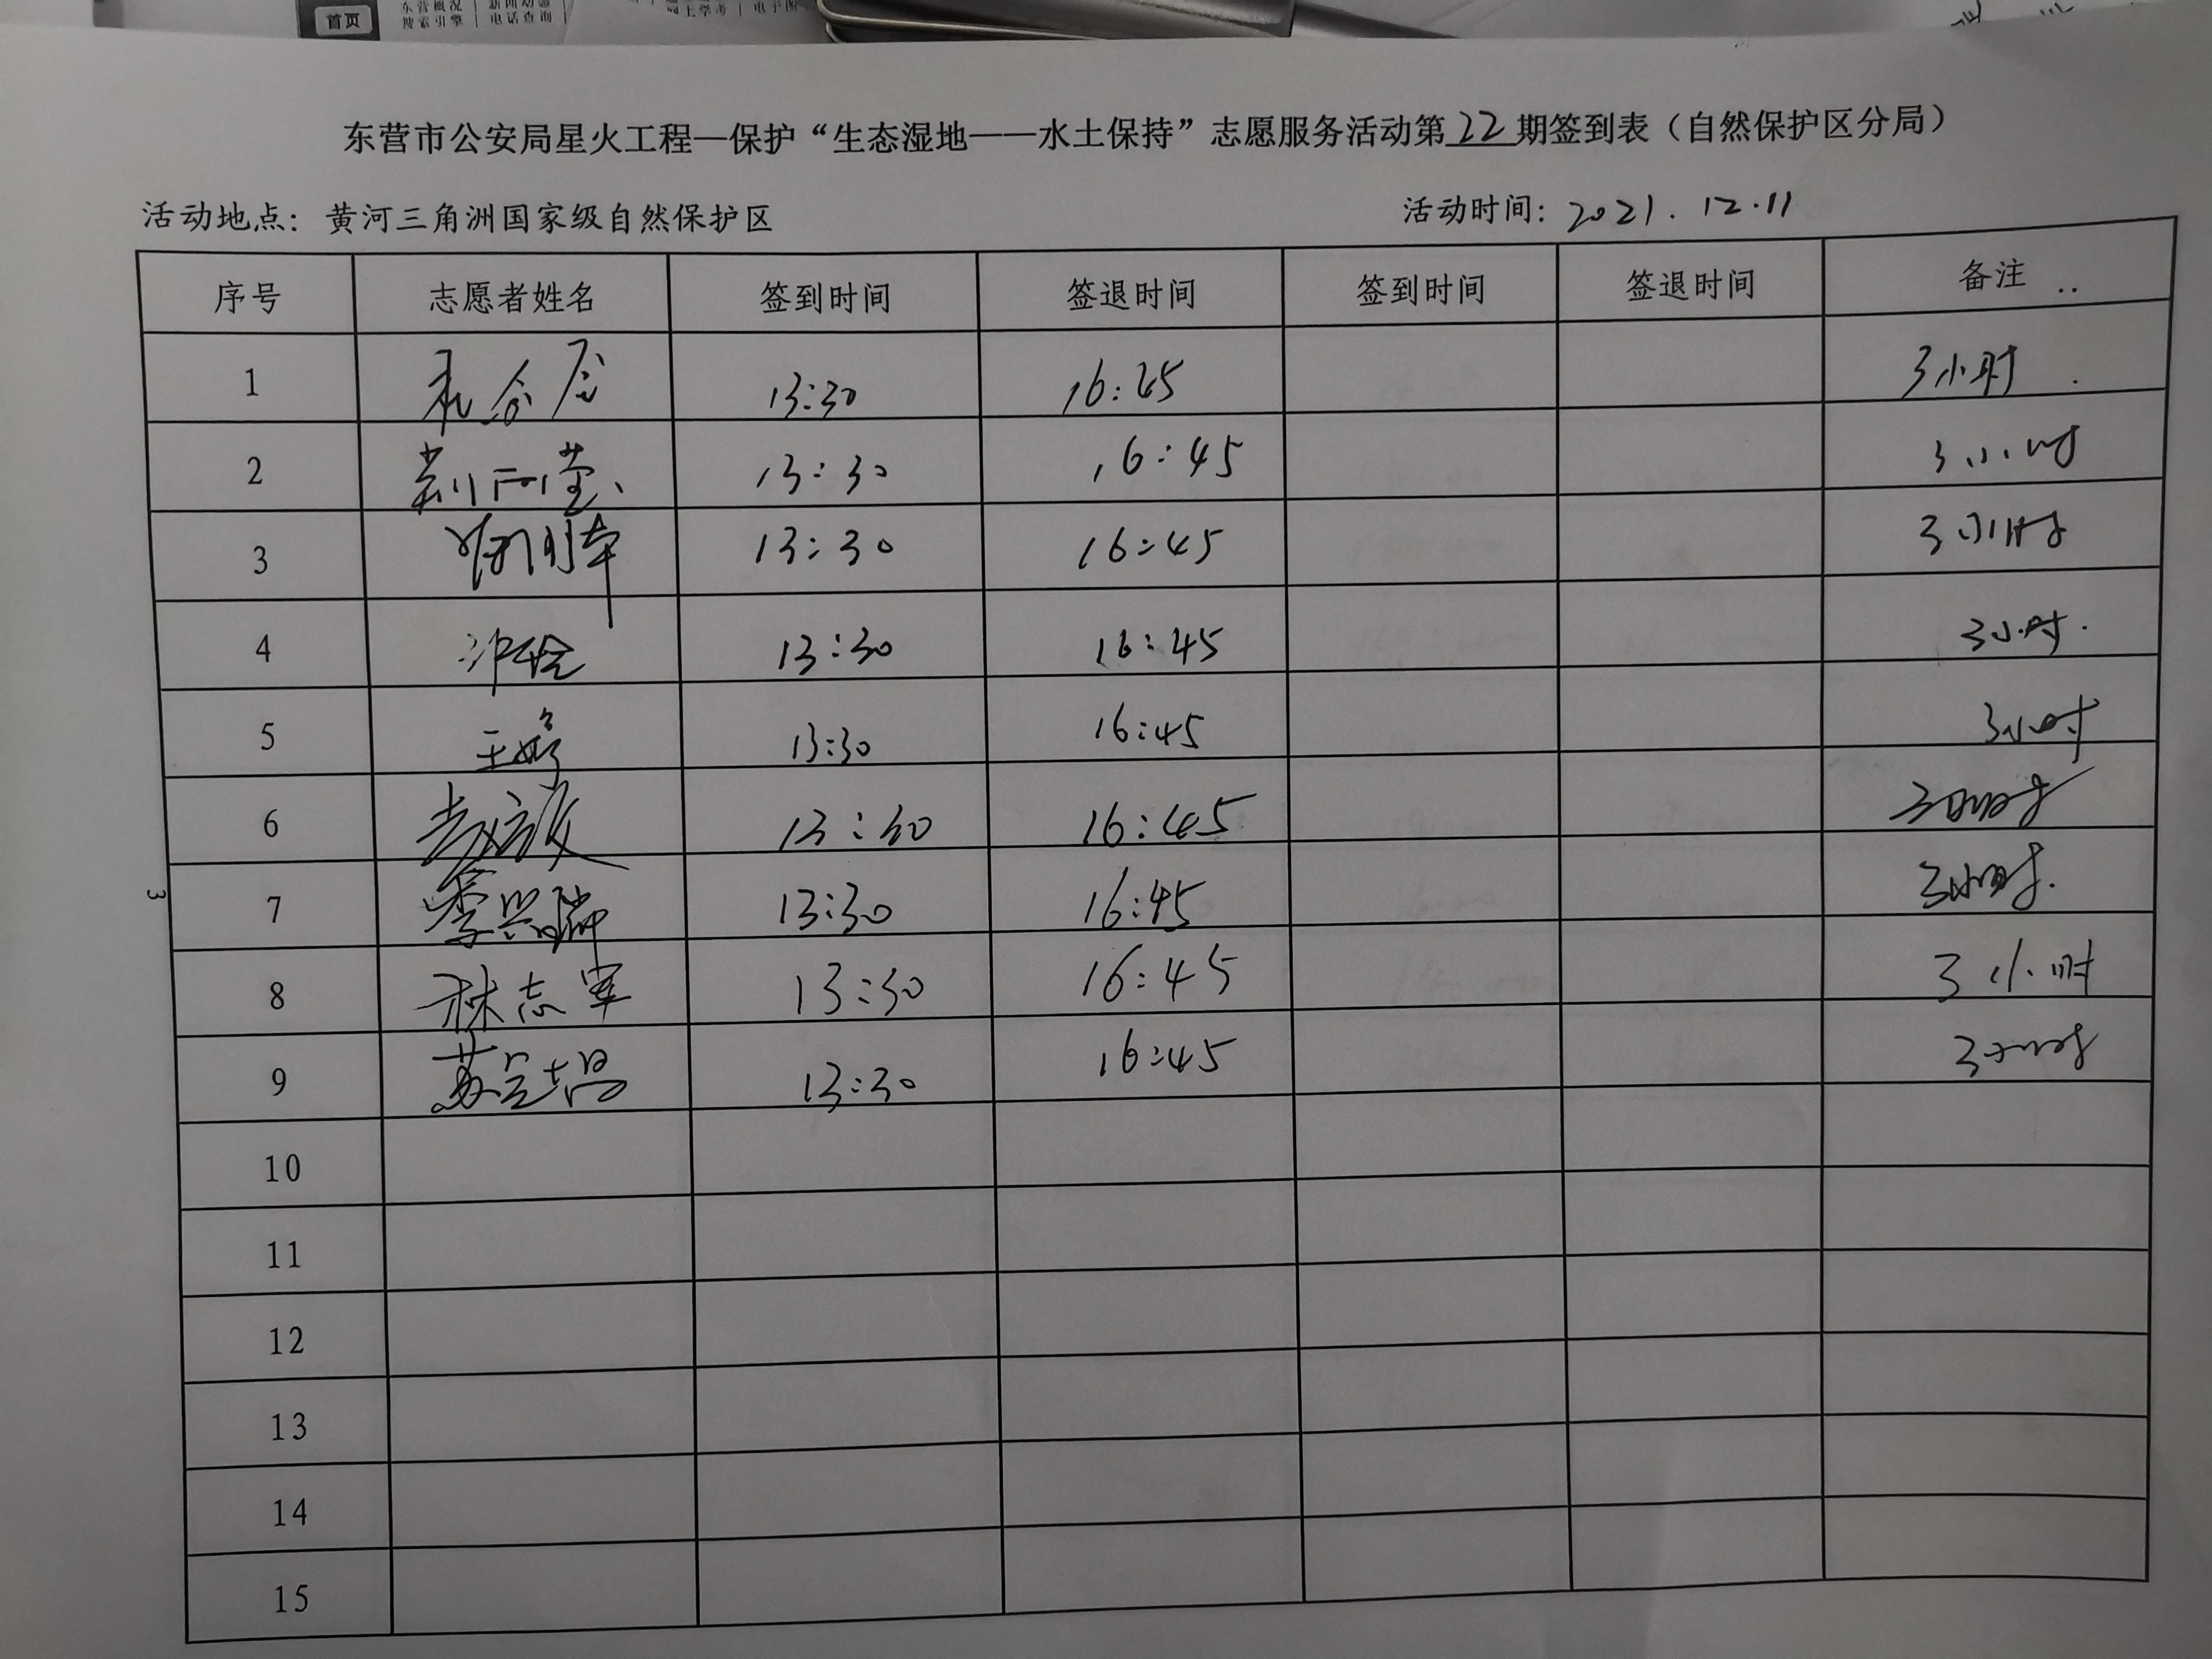 首页
东营概况 | 新闻动态
搜索引擎 | 电话查询
网上学考 | 电子图
东营市公安局星火工程—保护“生态湿地——水土保持”志愿服务活动第22期签到表（自然保护区分局）
活动地点：黄河三角洲国家级自然保护区 活动时间：2021.12.11
序号 志愿者姓名 签到时间 签退时间 签到时间 签退时间 备注
1 13:30 16:45 3小时
2 13:30 16:45 3小时
3 13:30 16:45 3小时
4 13:30 16:45 3小时.
5 王婷 13:30 16:45 3小时
6 13:30 16:45 3小时
7 李兴瑞 13:30 16:45 3小时.
8 林志军 13:30 16:45 3小时
9 13:30 16:45 3小时
10
11
12
13
14
15
3